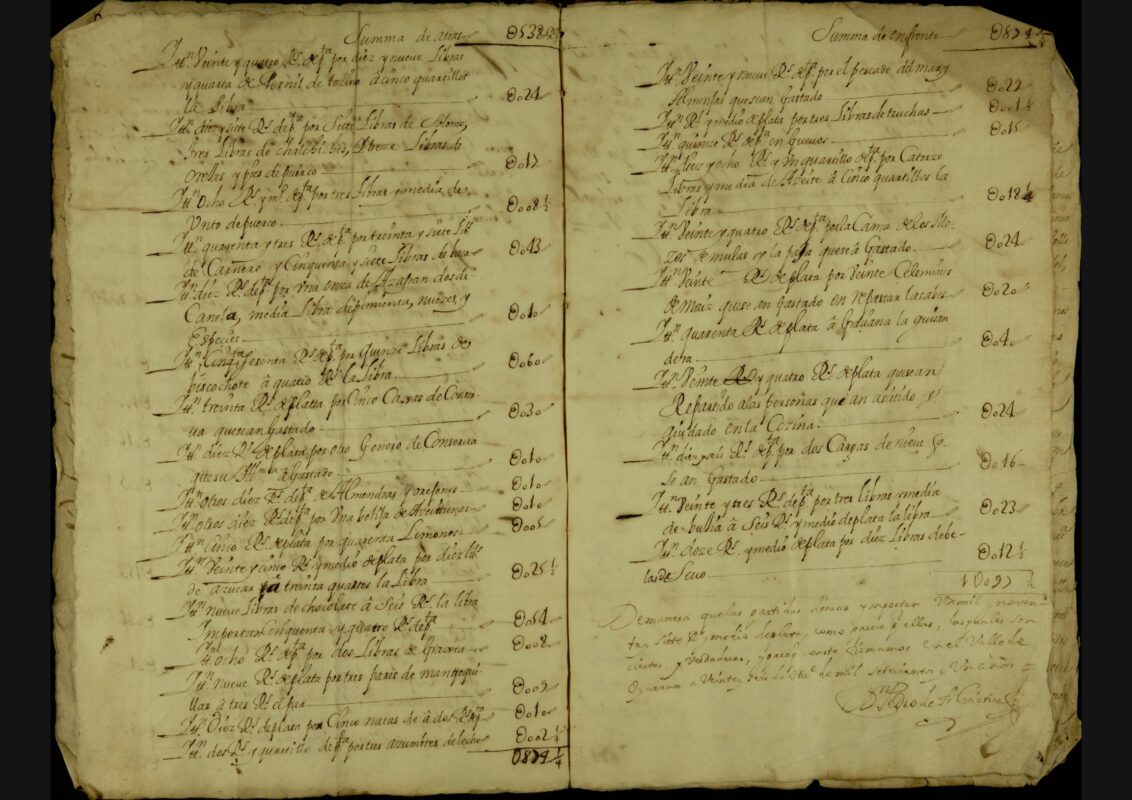 Summa de atras 0538
Itt.n Veinte y quatro R.s de p.ta por diez y nueve Libras
y quarta de Pernil de tozino a cinco quartillos
la libra 0o24
Itt.n diez y siete R.s de p.ta por Siete Libras de Solomo,
tres Libras de chalchichas, Libras de
orejas y pies de puerco 0o17
Itt.n Ocho R.s y m.o de p.ta por tres Libras y media de
Unto de puerco 0oo8 ½
Itt.n quarenta y tres R.s de p.ta por treinta y siete
de Carnero y Cinquenta y siete Libras de baca 0o43
Itt.n diez R.s de p.ta por Una onza de Azafran dos de
Canela, media Libra de pimienta, nuezes, y
Especies 0o1o
Itt.n sesenta R.s de p.ta por Quinze Libras de
biscochote â quatro R.s la Libra 0o6o
Itt.n treinta R.s de platta por Cinco Caxas de Conser
va que se an gastado 0o3o
Itt.n diez R.s de plata por otro Genero de Conserva
que su â Gastado 0o1o
Itt.n otros diez R.s de p.ta de Almendras y orejones 0o1o
Itt.n otros diez R.s de p.ta por Una botija de Azeittunas 0o1o
Itt.n Cinco R.s de plata por quarenta Limones 0oo5
Itt.n Veinte y cinco R.s y medio de plata por diez
de azucar â treinta quartos la Libra 0o25 ½
Itt.n nueve Libras de chocolate â Seis R.s la libra
Importan Cinquenta y quatro R.s de p.ta 0o54
Itt.n Ocho R.s de p.ta por dos Libras de Gragea 0oo8
Itt.n nueve R.s de plata por tres pares de mantequi
llas â tres R.s el par 0oo9
Itt.n Diez R.s de plata por Cinco natas de â dos R.s 0o1o
Itt.n dos R.s y quartillo de p.ta por tres azumbres de leche 0oo2 ¼
0874 ¼
Summa de enfrente 0874 ¼
Itt.n Veinte y nueve R.s de p.ta por el pescado del mar y
Almejas que se an Gastado 0o29
Itt.n R.s y medio de plata por tres Libras de truchas
Itt.n quinze R.s de p.ta en Guevos 0o15
Itt.n Diez y ocho R.s y Un quartillo de p.ta por Catorze
Libras y media de Azeite â Cinco quartillos la
Libra 0o18 ¼
Itt.n Veinte y quatro R.s de p.ta por la Cama de los Mo
zos de mulas y la paja que se â Gastado 0o24
Itt.n Veinte R.s de plata por Veinte Celemines
de maiz que se an Gastado en
0o2o
Itt.n quarenta R.s de plata â la guisan
dera 0o4o
Itt.n Veinte y quatro R.s de plata que se an
Repartido a las personas que an asistido y
ayudado en la Cozina 0o24
Itt.n diez y seis R.s de p.ta por dos Cargas de nieve q.
se an Gastado 0o16
Itt.n Veinte y tres R.s de p.ta por tres libras y media
de â Seis R.s y medio de plata la libra 0o23
Itt.n doze R.s y medio de plata por diez Libras de be
las de Sevo 0o12 ½
1o97 ½
De manera que las partidas de arrivo ymportan Un mil, noven
ta, siete R.s media de plata, como parece de ellas, las quales son
ciertas, y Verdaderas, y para que conste firmamos en el Valle de
Oyarzun a Veinte, seis de de mil setecientos y Un años
D.n Pedro de